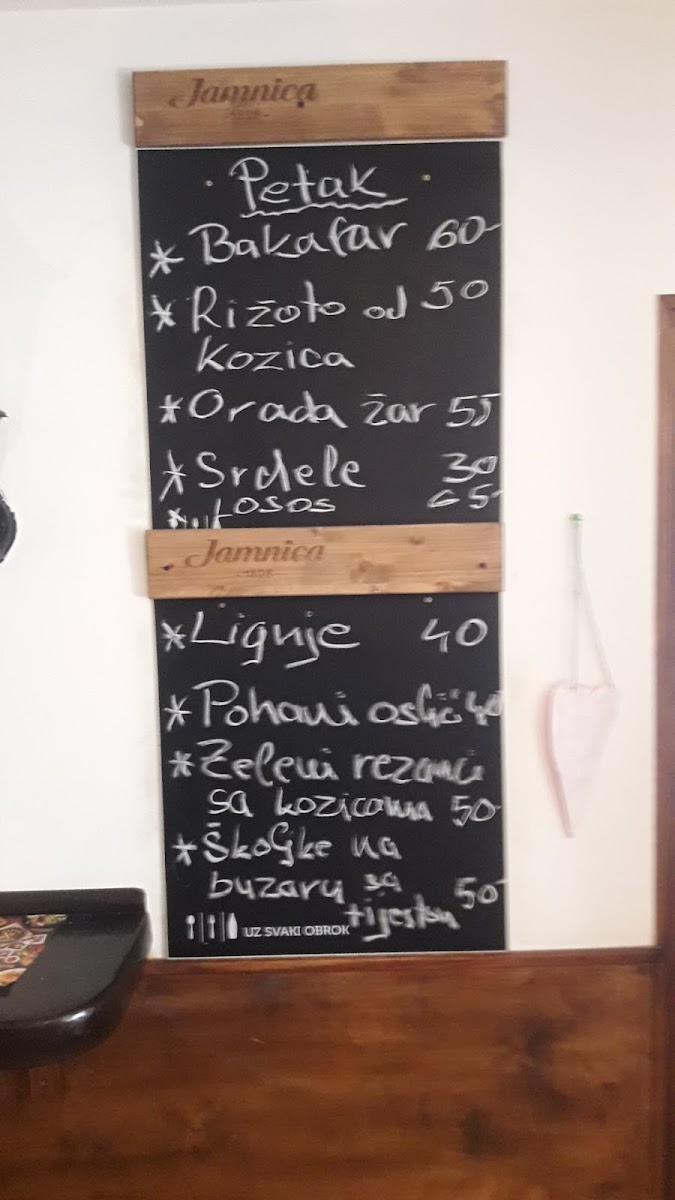 Jamnica
Petak
* Bakalar 60-
* Rižoto od 50
kozica
* Orada žar 55
* Srdele 30
* Losos 65-
Jamnica
* Lignje 40
* Pohani oslić 40
* Zeleni rezanci
sa kozicama 50-
* Školjke na
buzaru sa 50-
tijestom
UZ SVAKI OBROK